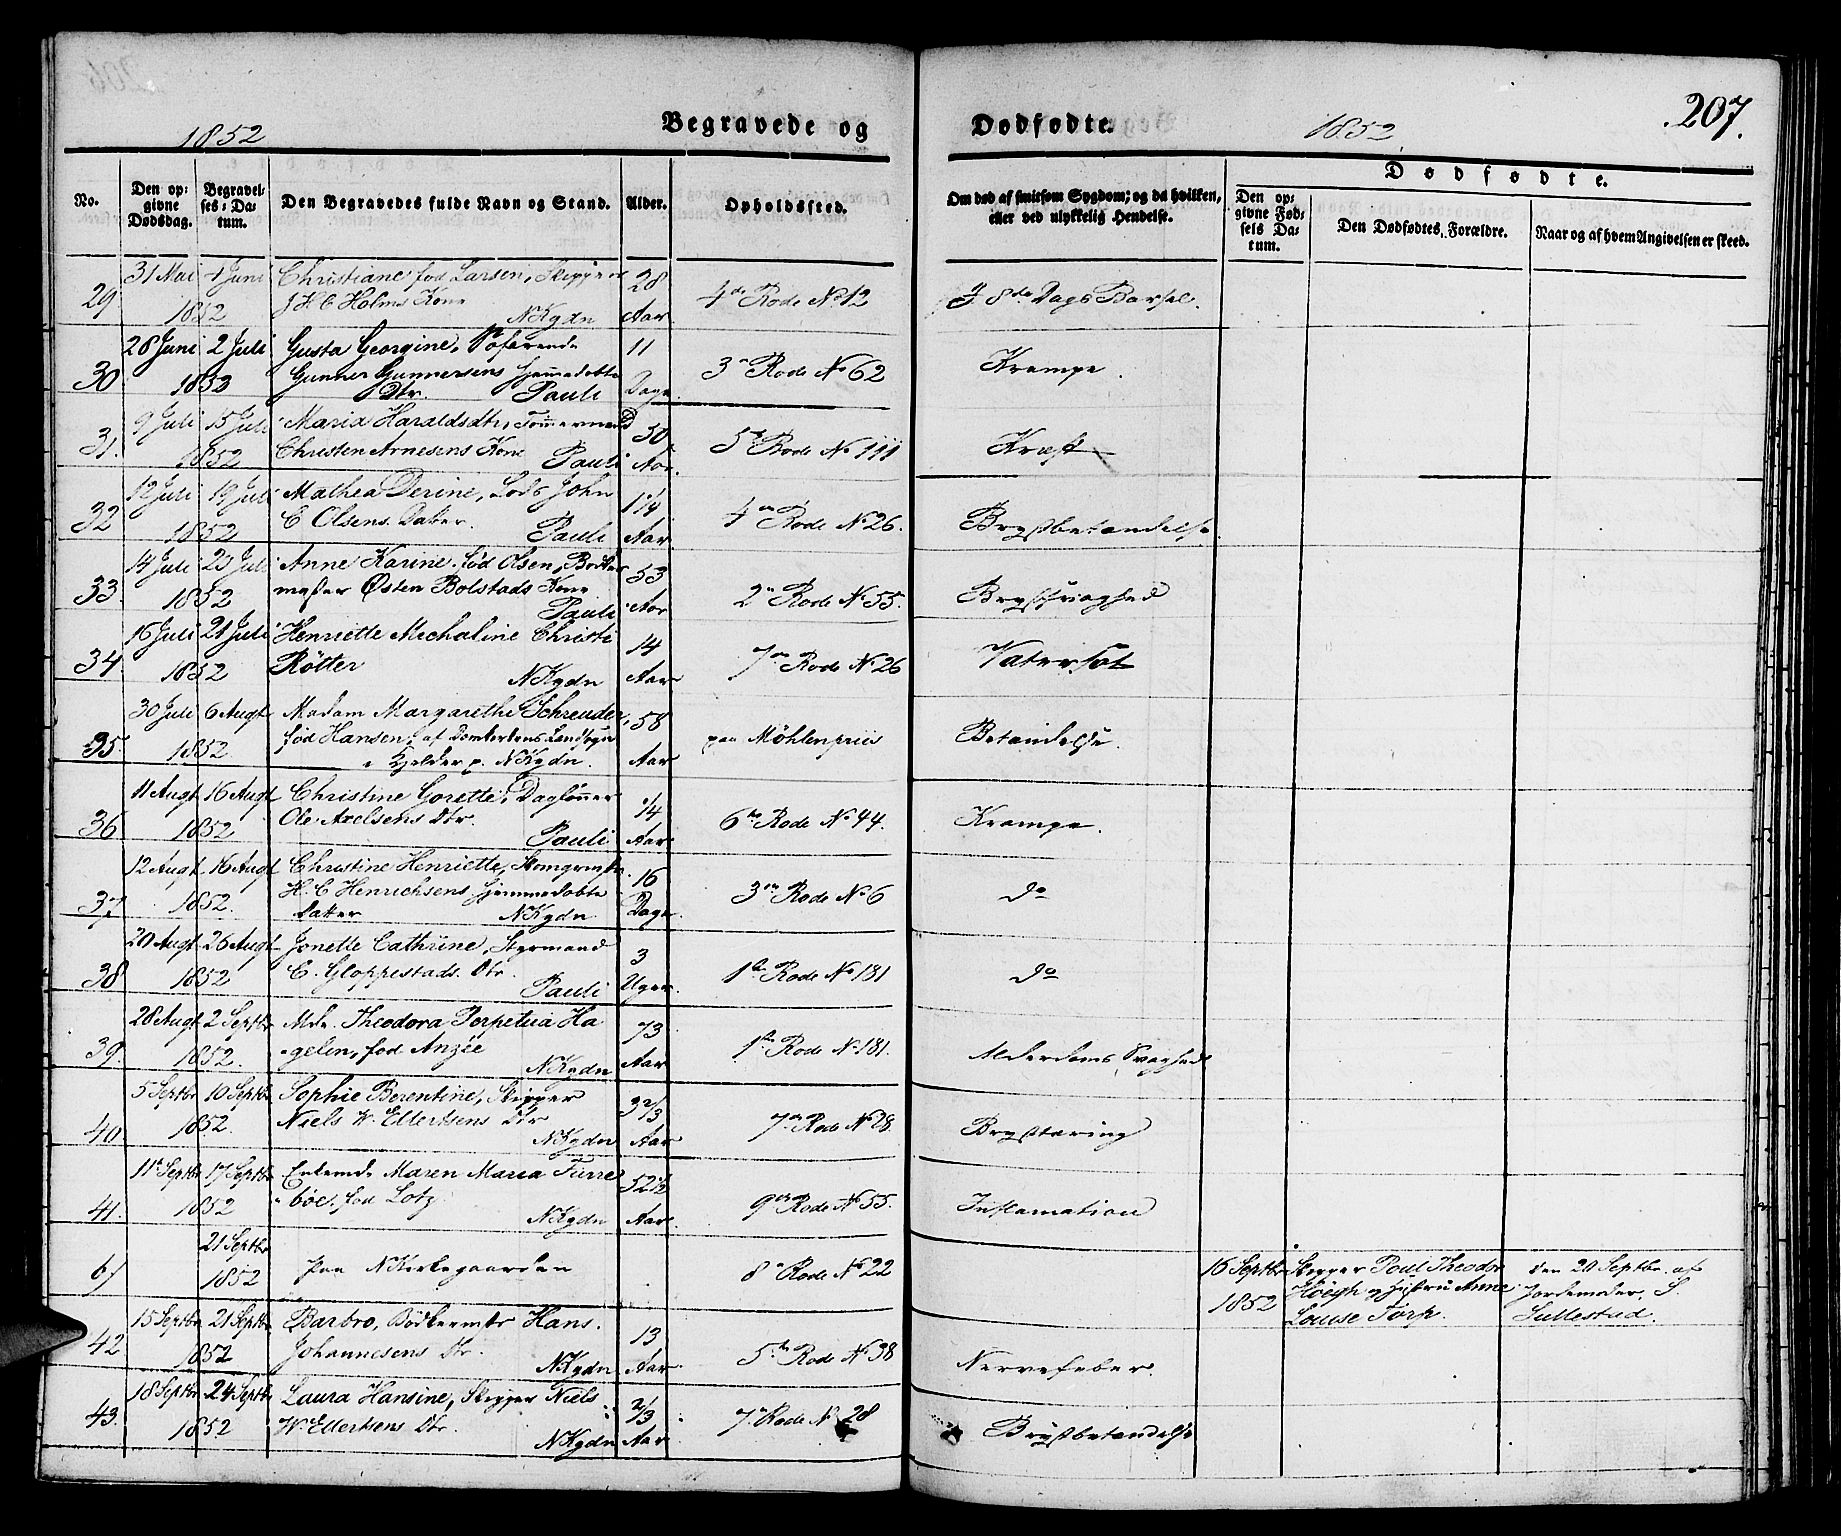 207.
1852
Begravede og
Dødfødte.
1852.
No.
Den opgivne Dødsdag.
Begravelses-Datum.
Den Begravedes fulde Navn og Stand.
Alder.
Opholdssted.
Om død af smitsom Sygdom; og da hvilken, eller ved ulykkelig Hendelse.
Dødfødte.
Den opgivne Fødsels Datum.
Den Dødfødtes Forældre.
Naar og af hvem Angivelsen er skeed.
29 31 Mai 4 Juni Christiane fød Larsen, Skipper 28
1852 J H C Holms Kone NKgdn Aar 4de Rode No 12 I 8de Dags Barsel.
30 28 Juni 2 Juli Gusta Georgine, Søfarende 11
1852 Gunner Gunnersens hjemmedøbte Dtr Pauli Dage 3e Rode No 62 Krampe.
31. 9 Juli 15 Juli Maria Haraldsdtr, Tømmermand 50
1852 Christen Arnesens Kone Pauli Aar. 5te Rode No 111 Kræft
32 12 Juli 19 Juli Mathea Derine, Lods John 1 1/4
1852 C Olsens Datter. Pauli Aar. 4de Rode No 26. Brystbetændelse.
33. 14 Juli 23 Juli Anne Karine fød Olsen, Bødker 53
1852 mester Østen Bolstads Kone Pauli Aar 2n Rode No 55. Brystsvaghed
34. 16 Juli 21 Juli Henriette Michaline Christi 14
1852 Røtter NKgdn Aar 7n Rode No 26 Vatersot
35 30 Juli 6 Augt Madam Margarethe Schreuder, 58
1852 fød Hansen, af Domkirkens Landsogn
i Kjelder p. NKgdn. Aar paa Møhlenpriis Betændelse.
36 11 Augt 16 Augt Christine Gorette, Dagløner 1/4
1852 Ole Axelsens Dtr. Pauli Aar 6te Rode No 44. Krampe.
37 12 Augt 16 Augt Christine Henriette, 16
1852. H. C Henrichsens hjemmedøbte
Datter NKgdn Dage. 3de Rode No 6 do
38 20 Augt 26 Augt Jonette Cathrine, Styrmand 3
1852 C. Gloppestads Dtr. Pauli Uger. 1ste Rode No 181 do
39. 28 Augt 2 Septbr Mde. Theodora Perpetua Ha 73
1852. gelen, fød Anzée NKgdn Aar 1ste Rode No 181. Alderdoms Svaghed
40 5 Septbr 10 Septbr Sophie Berentine, Skipper 3 2/3
1852. Niels W. Ellertsens Dtr NKgdn Aar 7de Rode No 28. Brysttæring
41. 11 Septbr 17 Septbr Enkemde Maren Maria Furre 52 1/2
1852 bøe, fød Lotz NKgdn Aar. 9de Rode No 55. Inflamation
6) 21 Septbr
1852 paa NKirkegaarden 8n Rode No 22 16 Septbr Skipper Poul Theodor den 20 Septbr af
1852 Höegh og Hustru Anne Jordemoder, S.
Louise Torp. Sullestad.
42 15 Septbr 21 Septbr Barbro, Bødkermstr Hans 13
1852 Johannesens Dtr. NKgdn Aar 5te Rode No 38 Nervefeber.
43. 18 Septbr 24 Septbr Laura Hansine, Skipper Niels 2/3
1852 W. Ellertsens Dtr. NKgdn Aar 7n Rode No 28 Brystbetændelse